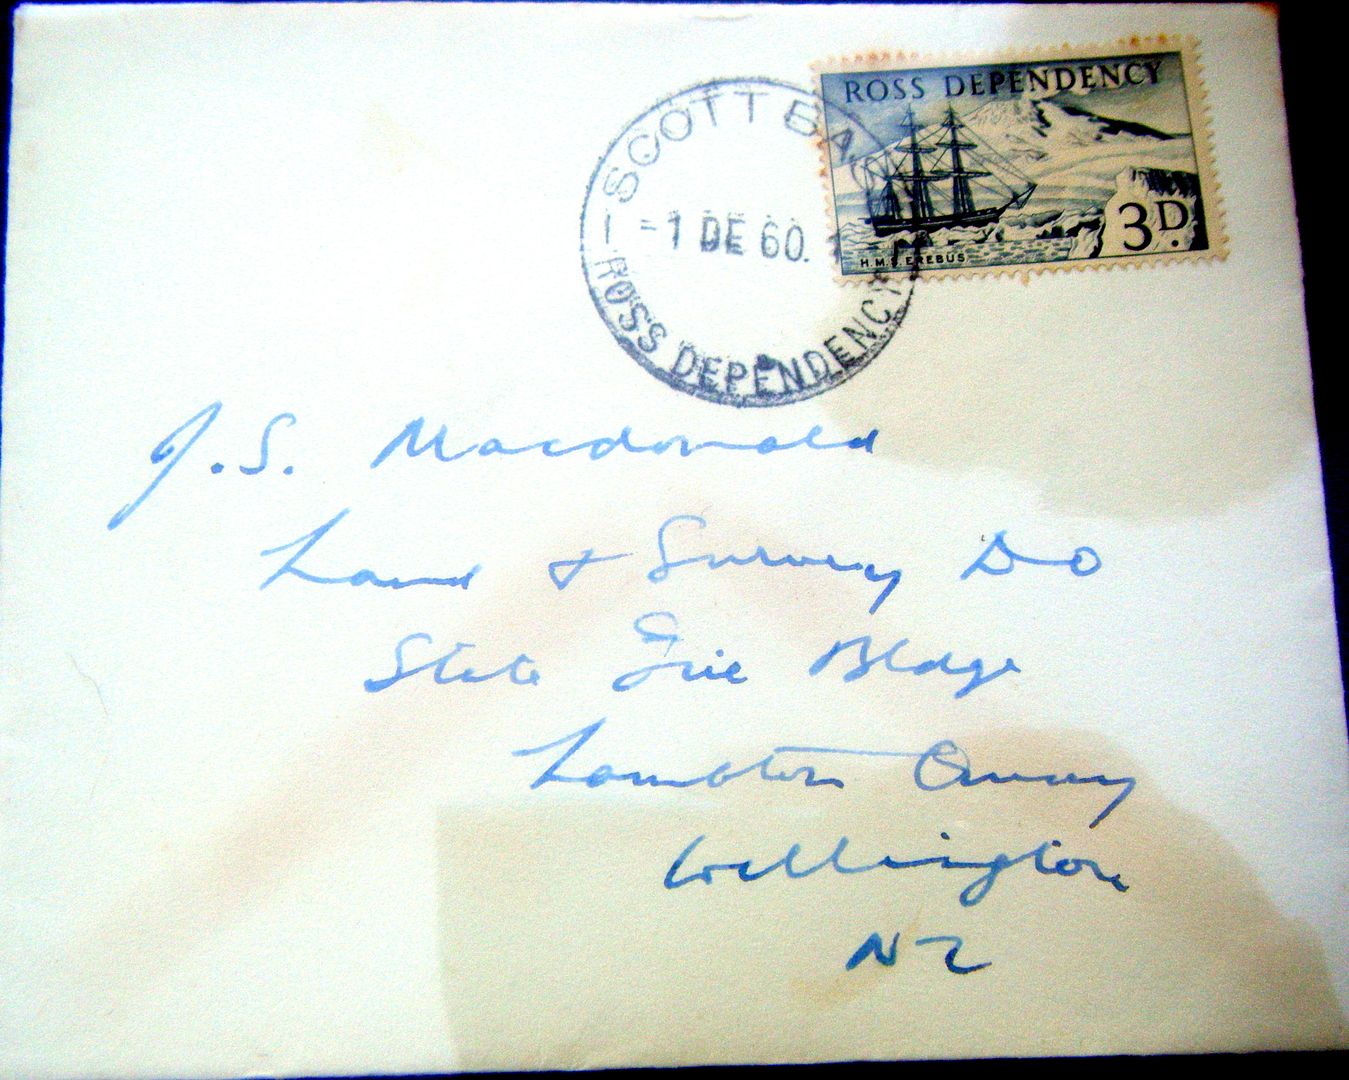 ROSS DEPENDENCY
3D.
H.M.S. EREBUS
SCOTT BASE
-1 DE 60.
ROSS DEPENDENCY
J.S. Macdonald
Land & Survey DO
State Fire Bldge
Lambton Quay
Wellington
NZ